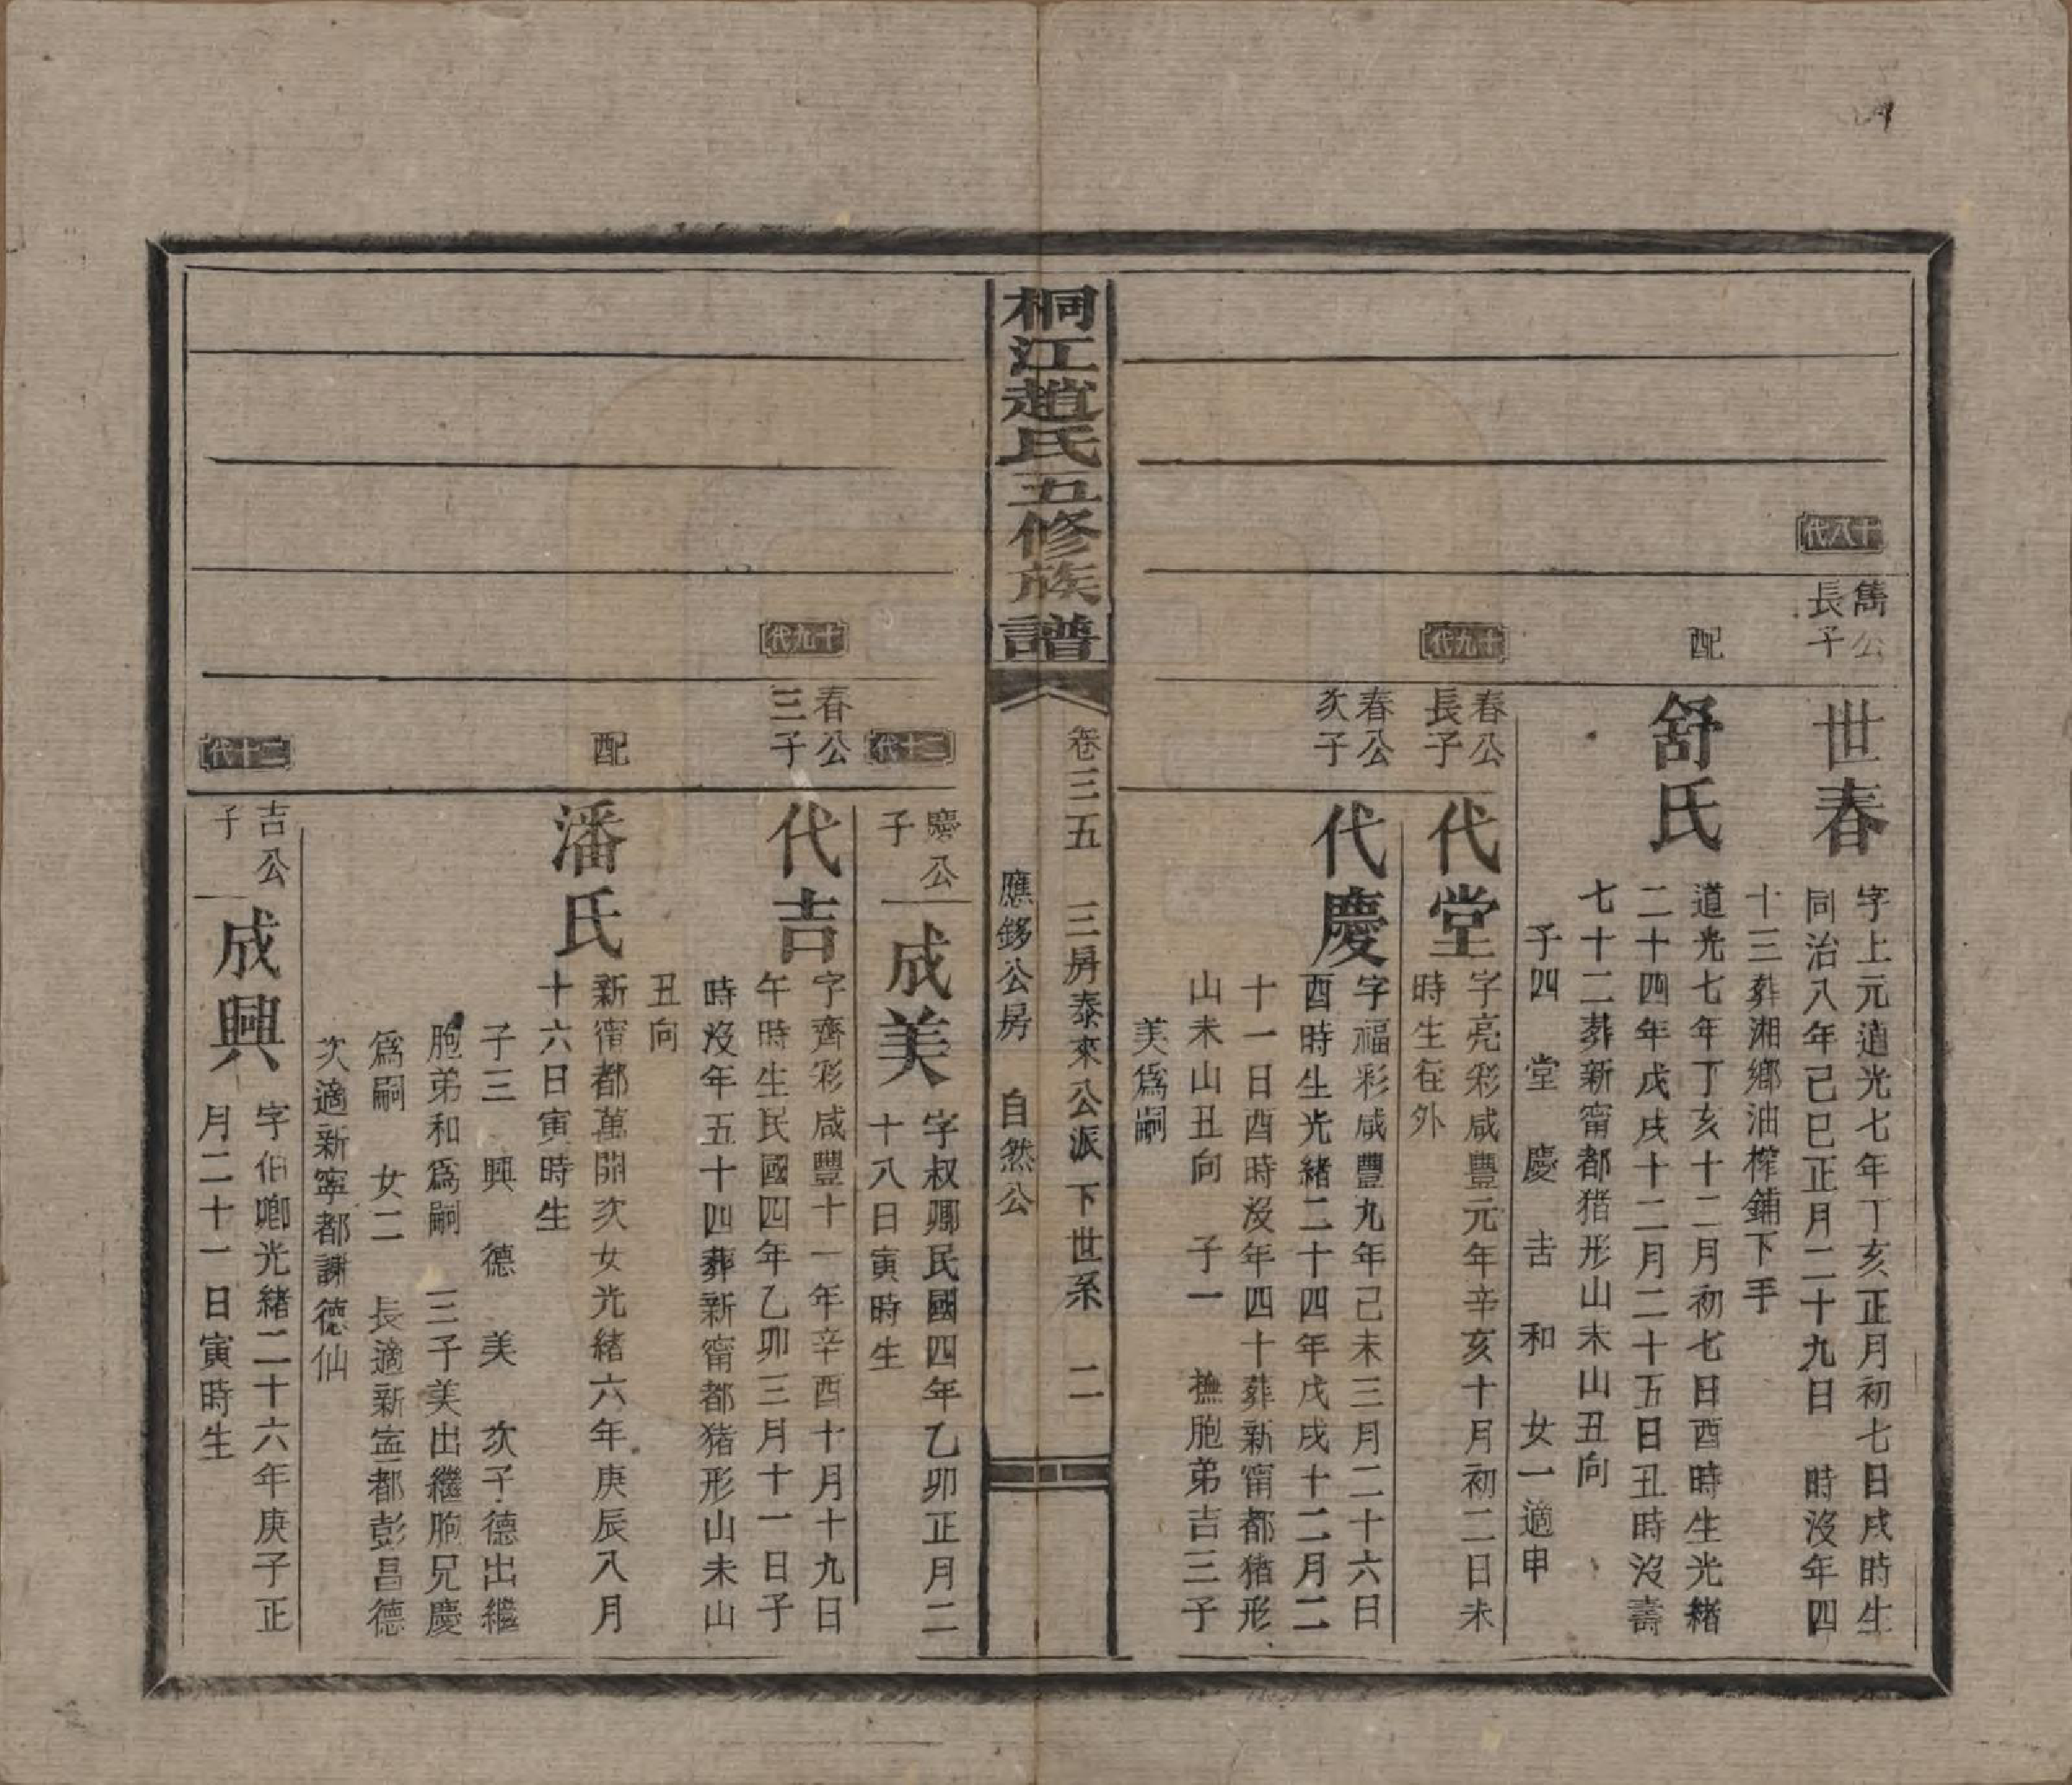 十八代
雋公
長子
世春
字上元道光七年丁亥正月初七日戌時生
同治八年己巳正月二十九日 時沒年四
十三葬湘鄉油榨鋪下手
配
舒氏
道光七年丁亥十二月初七日酉時生光緒
二十四年戊戌十二月二十五日丑時沒壽
七十二葬新甯都猪形山未山丑向
子四 堂 慶 吉 和 女一適申
十九代
春公
長子
代堂
字亮彩咸豐元年辛亥十月初二日未
時生在外
春公
次子
代慶
字福彩咸豐九年己未三月二十六日
酉時生光緒二十四年戊戌十二月二
十一日酉時沒年四十葬新甯都猪形
山未山丑向 子一 撫胞弟吉三子
美爲嗣
桐江趙氏五修族譜
卷三五 三房泰來公派下世系 二
應鉹公房 自然公
二十代
慶公
子
成美
字叔卿民國四年乙卯正月二
十八日寅時生
十九代
春公
三子
代吉
字齊彩咸豐十一年辛酉十月十九日
午時生民國四年乙卯三月十一日子
時沒年五十四葬新甯都猪形山未山
丑向
配
潘氏
新甯都萬開次女光緒六年庚辰八月
十六日寅時生
子三 興 德 美 次子德出繼
胞弟和爲嗣 三子美出繼胞兄慶
爲嗣 女二 長適新寍都彭昌德
次適新寧都謝德仙
二十代
吉公
子
成興
字伯卿光緒二十六年庚子正
月二十一日寅時生